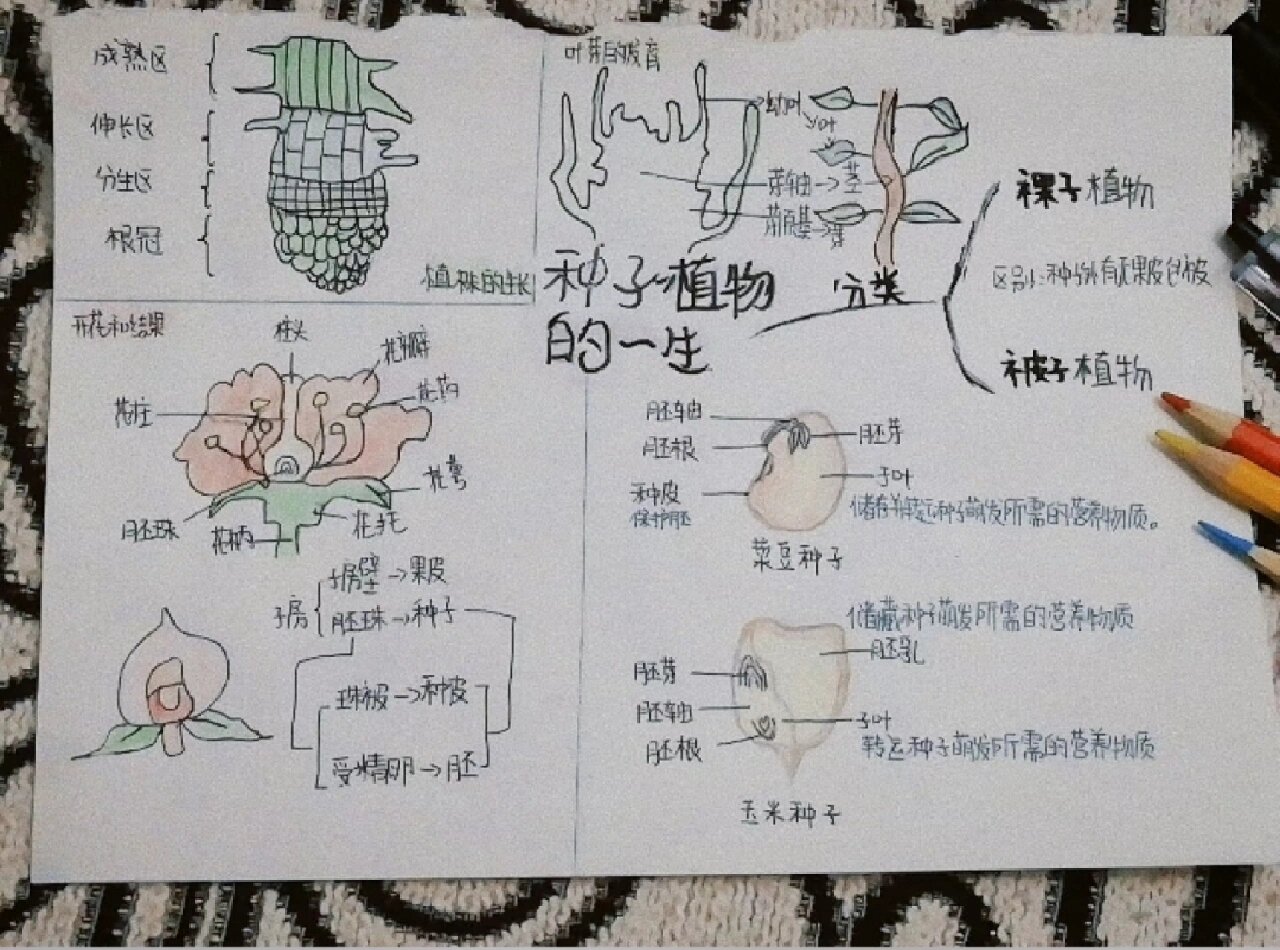 成熟区
伸长区
分生区
根冠
植株的生长
叶芽的发育
幼叶
叶
芽轴→茎
芽原基→芽
种子植物
的一生
分类
裸子植物
区别:种外有无果皮包被
被子植物
开花和结果
柱头
花瓣
花药
花柱
花萼
胚珠
花柄
花托
子房
子房壁→果皮
胚珠→种子
珠被→种皮
受精卵→胚
胚轴
胚根
胚芽
子叶
种皮
保护胚
储存转运种子萌发所需的营养物质。
菜豆种子
储藏种子萌发所需的营养物质
胚乳
胚芽
胚轴
胚根
子叶
转运种子萌发所需的营养物质
玉米种子